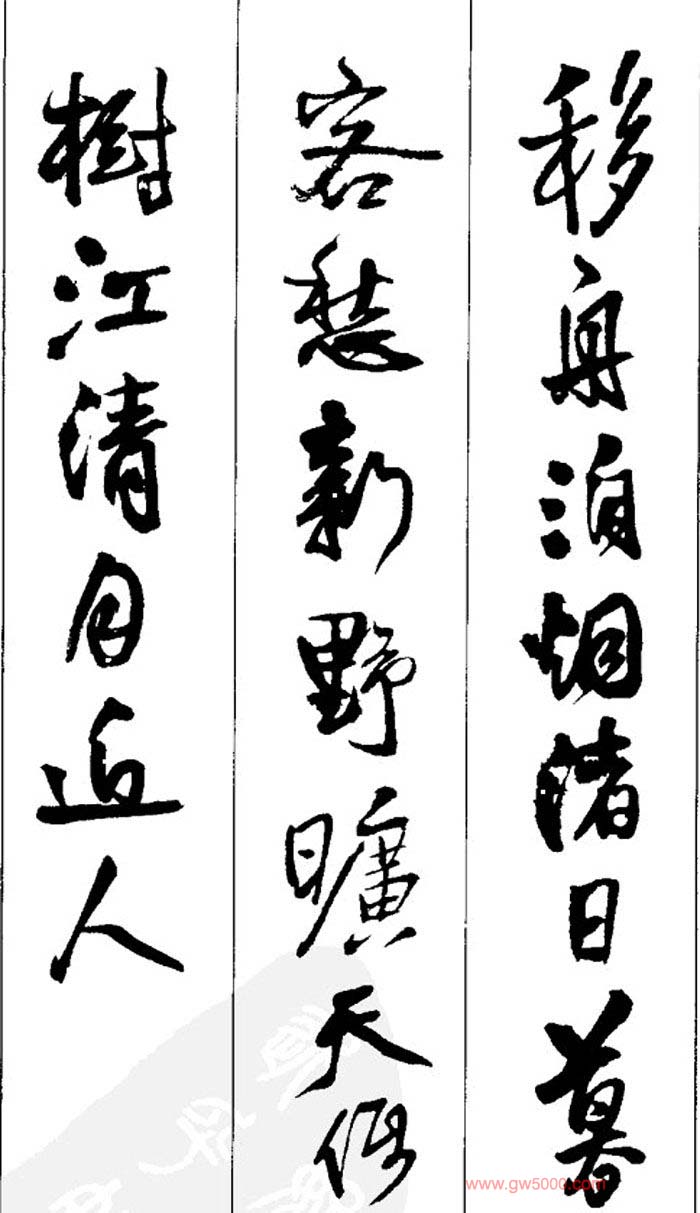 移舟泊烟渚日暮
客愁新野曠天低
樹江清月近人
www.gw5000.com